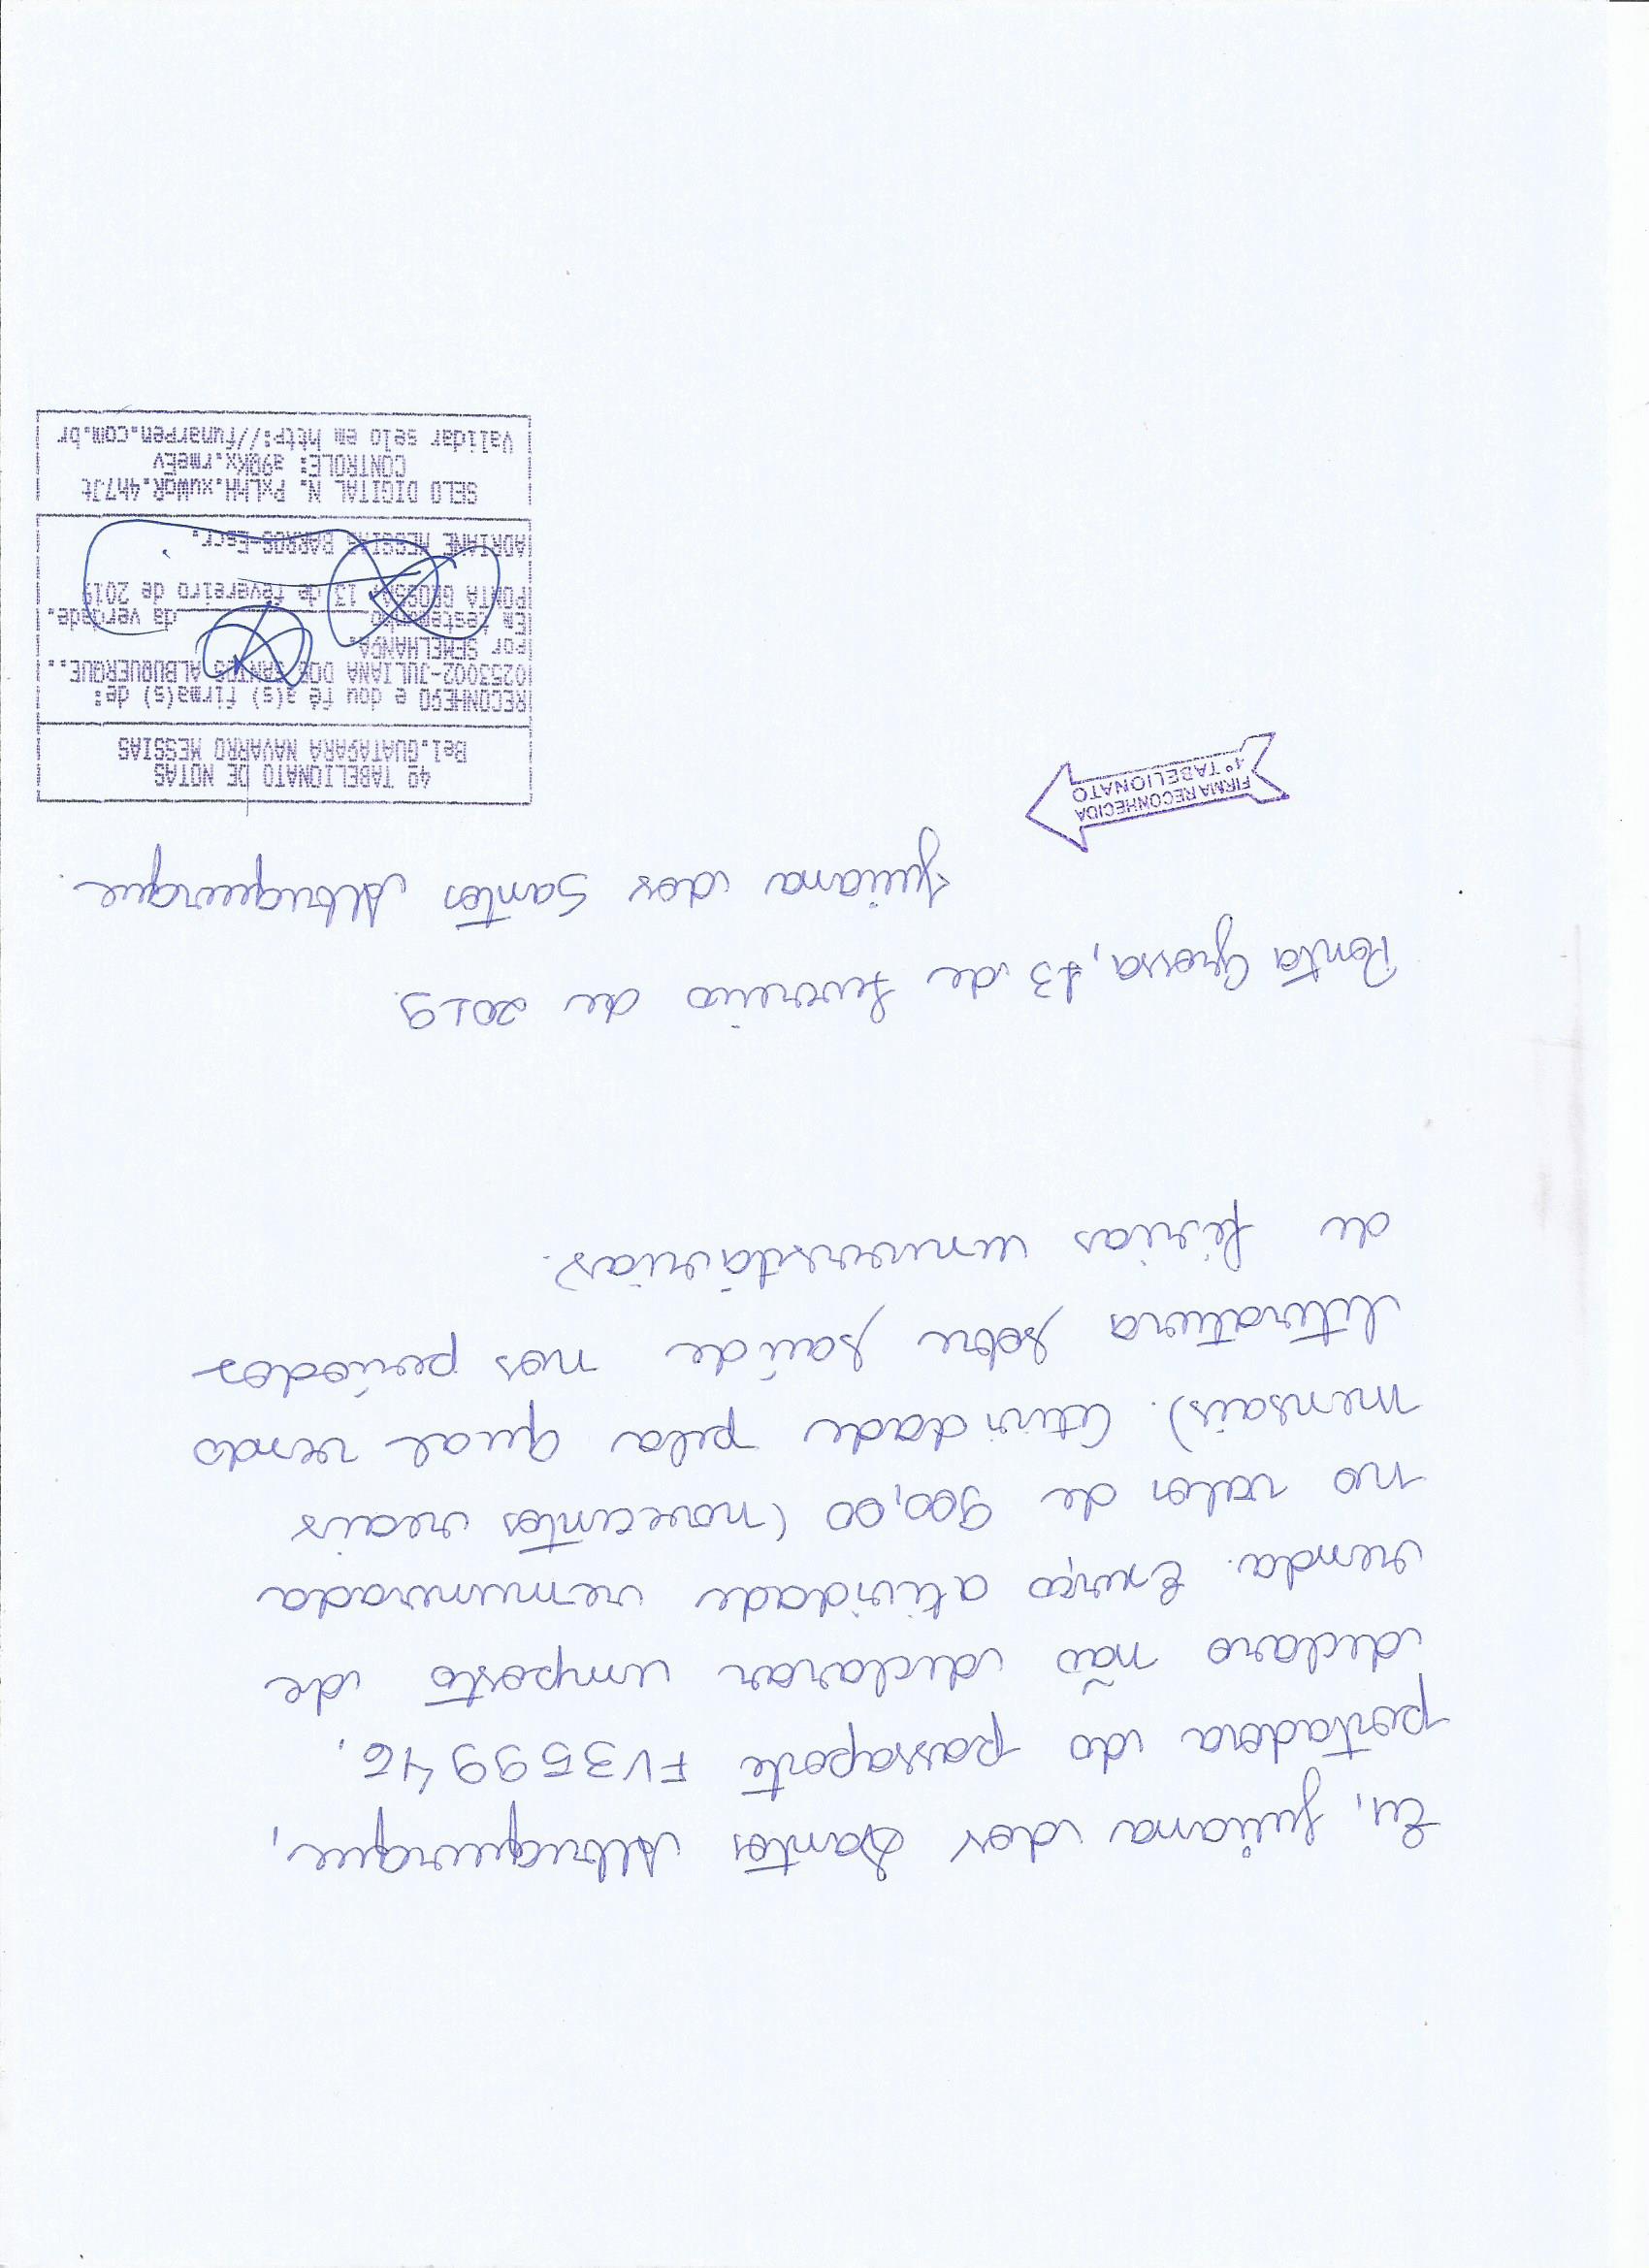 Eu, Juliana dos Santos Albuquerque,
portadora do passaporte FV359946,
declaro não declarar imposto de
renda. Exerço atividade remunerada
no valor de 900,00 (novecentos reais
mensais). Atividade pela qual vendo
literatura sobre saúde nos períodos
de férias universitárias.
Ponta Grossa, 13 de fevereiro de 2019.
Juliana dos Santos Albuquerque.
FIRMA RECONHECIDA
4º TABELIONATO
4º TABELIONATO DE NOTAS
Bel.GUATAÇARA NAVARRO MESSIAS
RECONHEÇO e dou fé a(s) firma(s) de:
0253002-JULIANA DOS SANTOS ALBUQUERQUE..
Por SEMELHANÇA.
Em testemunho da verdade.
PONTA GROSSA, 13 de fevereiro de 2019
ADRIANE MESSIAS BARROS-Escr.
SELO DIGITAL N. PxLhH.xuWGR.4h7Jt
CONTROLE: a90Kx.rmeEv
Validar selo em http://funarpen.com.br